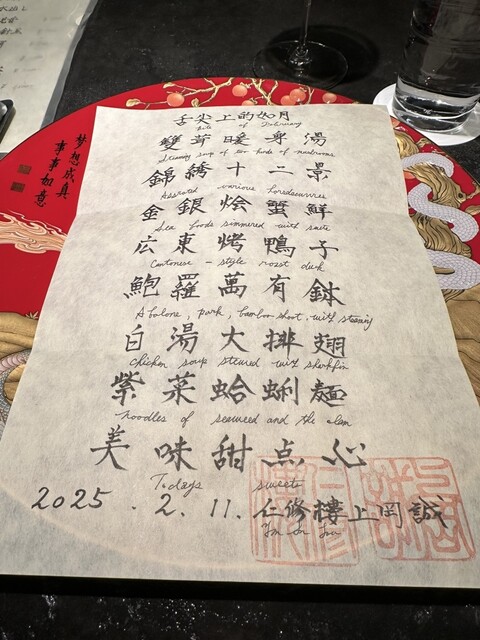 舌尖上的如月
Bite of February
雙茸暖身湯
Steaming soup of two kinds of mushrooms
錦繡十二景
Assorted various horsdoeuvres
金銀烩蟹鮮
Sea foods simmered with
広東烤鴨子
Cantonese-style roast duck
鮑羅萬有鉢
Abalone, pork, bamboo shoot with steaming
白湯大排翅
Chicken soup stewed with sharkfin
紫菜蛤蜊麺
noodles of seaweed and the clam
美味甜点心
Todays sweets
2025.2.11.仁修樓上岡誠
梦想成真
事事如意